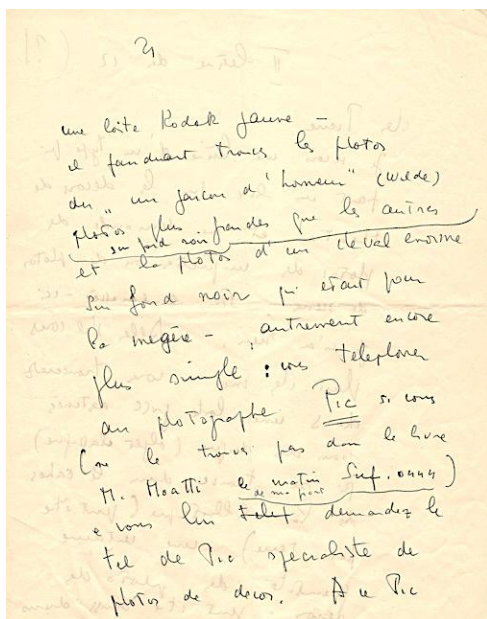 2)
une boite Kodak jaune –
il faudrait trouver les photos
du "un garçon d'honneur" (Wilde)
photos plus grandes que les autres
sur fond noir
et les photos d'un cheval enorme
sur fond noir qui etait pour
la megère – autrement encore
plus simple : vous telephoner
au photographe Pic si vous
(ne le trouvez pas dans le livre
M. Moatti le matin Suf. 0444)
de ma part
e vous lui telef demandez le
tel de Pic specialiste de
photos de decor. A ce Pic